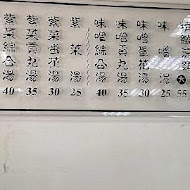 大 55
味噌湯 25
味噌蛋花湯 30
味噌貢丸湯 35
味噌綜合湯 40
紫菜湯 25
紫菜蛋花湯 30
紫菜貢丸湯 35
紫菜綜合湯 40